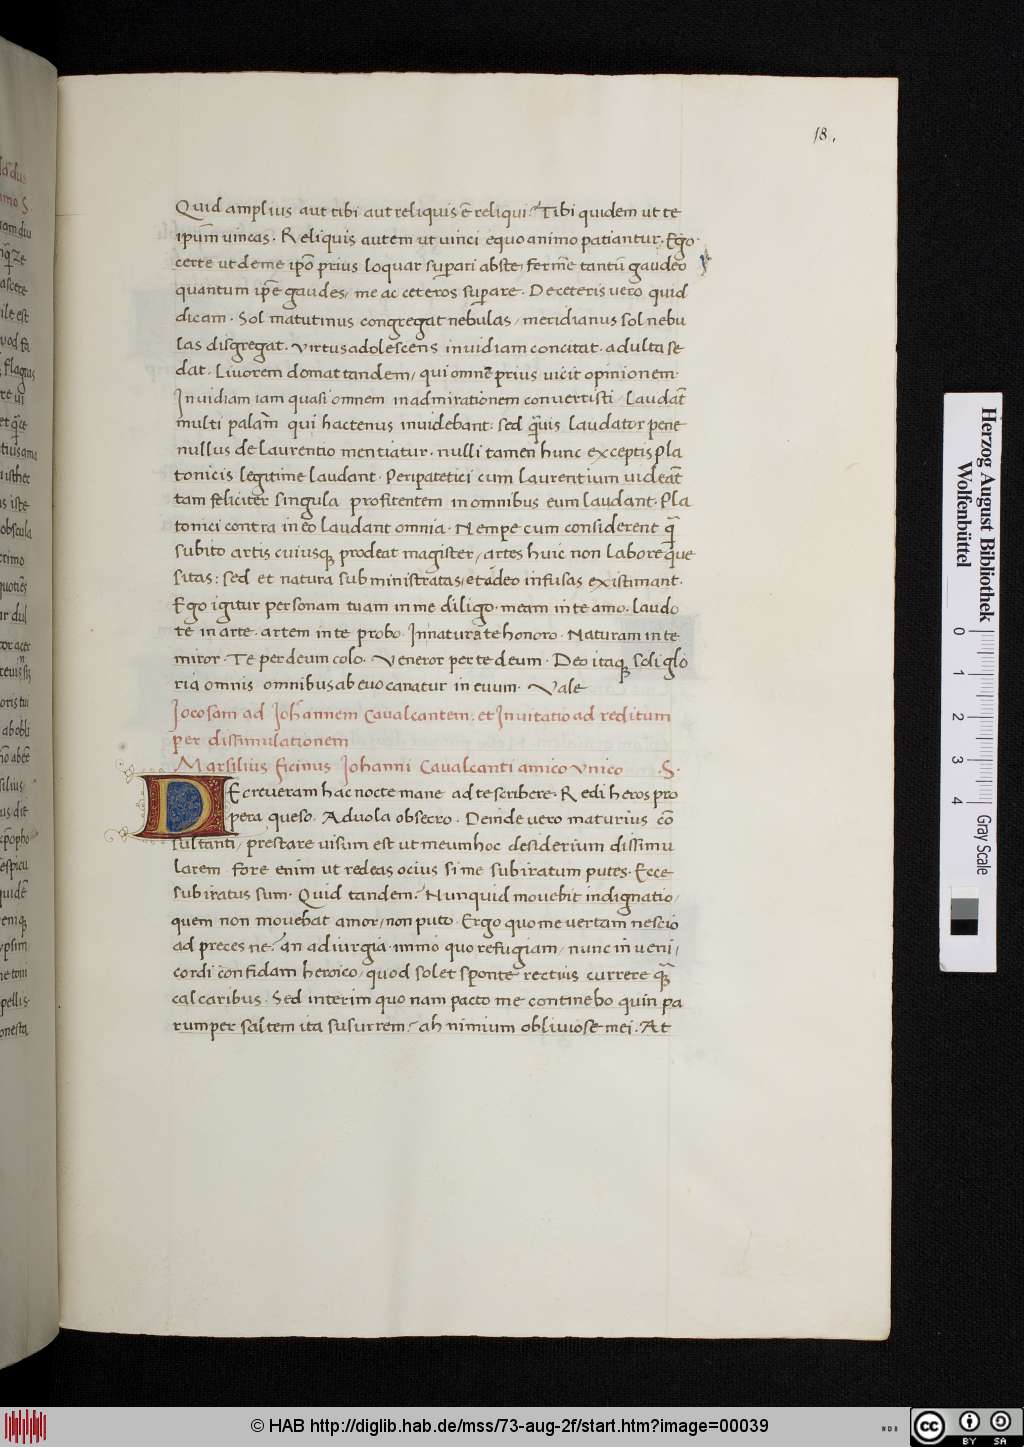 18.
Quid amplius aut tibi aut reliquis ē reliqui? Tibi quidem ut te
ipsum vincas. Reliquis autem ut vinci equo animo patiantur. Ego
certe ut de me ipso prius loquar supari abs te, ferme tantū gaudeo
quantum ipse gaudes, me ac ceteros supare. De ceteris vero quid
dicam. Sol matutinus congregat nebulas, meridianus sol nebu
las disgregat. virtus adolescens invidiam concitat. adulta se
dat. Livorem domat tandem, qui omnē prius vicit opinionem.
Invidiam iam quasi omnem in admirationem convertisti, Laudāt
multi palam qui hactenus invidebant: sed q̄vis laudator pene
nullus de laurentio mentiatur. nulli tamen hunc exceptis pla
tonicis legitime laudant. Peripatetici cum laurentium videāt
tam feliciter singula profitentem in omnibus eum laudant. Pla
tonici contra in eo laudant omnia. Nempe cum considerent q̄
subito artis cuiusq; prodeat magister, artes huic non labore que
sitas: sed et natura subministratas, et a deo infusas existimant.
Ego igitur personam tuam in me diligo. meam in te amo. laudo
te in arte. artem in te probo. In natura te honoro. Naturam in te
miror. Te per deum colo. Veneror per te deum. Deo itaq; soli glo
ria omnis omnibus ab evo canatur in evum. Vale
Iocosam ad Iohannem Cavalcantem: et Invitatio ad reditum
per dissimulationem
Marsilius ficinus Iohanni Cavalcanti amico unico S.
DEcreveram hac nocte mane ad te scribere. Redi heros pro
pera queso. Advola obsecro. Deinde vero maturius cō
sultanti, prestare visum est ut meum hoc desiderium dissimu
larem. fore enim ut redeas ocius si me subiratum putes. Ecce
subiratus sum. Quid tandem? Nunquid movebit indignatio,
quem non movebat amor, non puto. Ergo quo me vertam nescio
ad preces ne? an ad iurgia. immo quo refugiam, nunc inveni,
cordi confidam heroico, quod solet sponte rectius currere q̄;
calcaribus. Sed interim quo nam pacto me continebo quin pa
rumper saltem ita susurrem? ah nimium obliviose mei. At
Herzog August Bibliothek
Wolfenbüttel
0 1 2 3 4
Gray Scale
© HAB http://diglib.hab.de/mss/73-aug-2f/start.htm?image=00039
WDB
cc BY SA